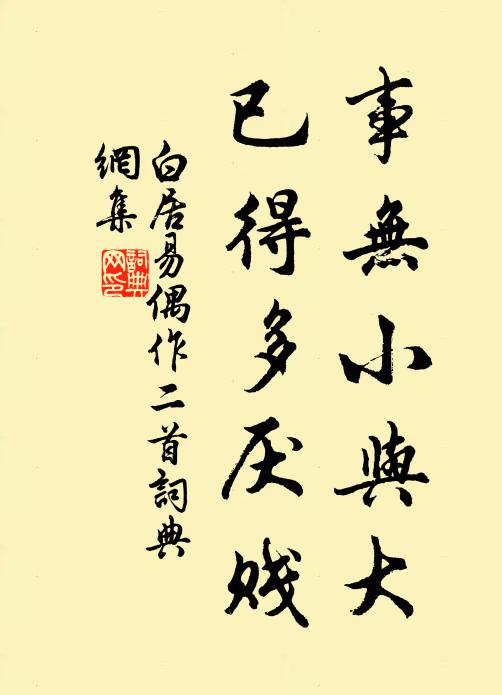 事無小與大
已得多厌贱
白居易偶作二首詞典
網集
詞典
网印